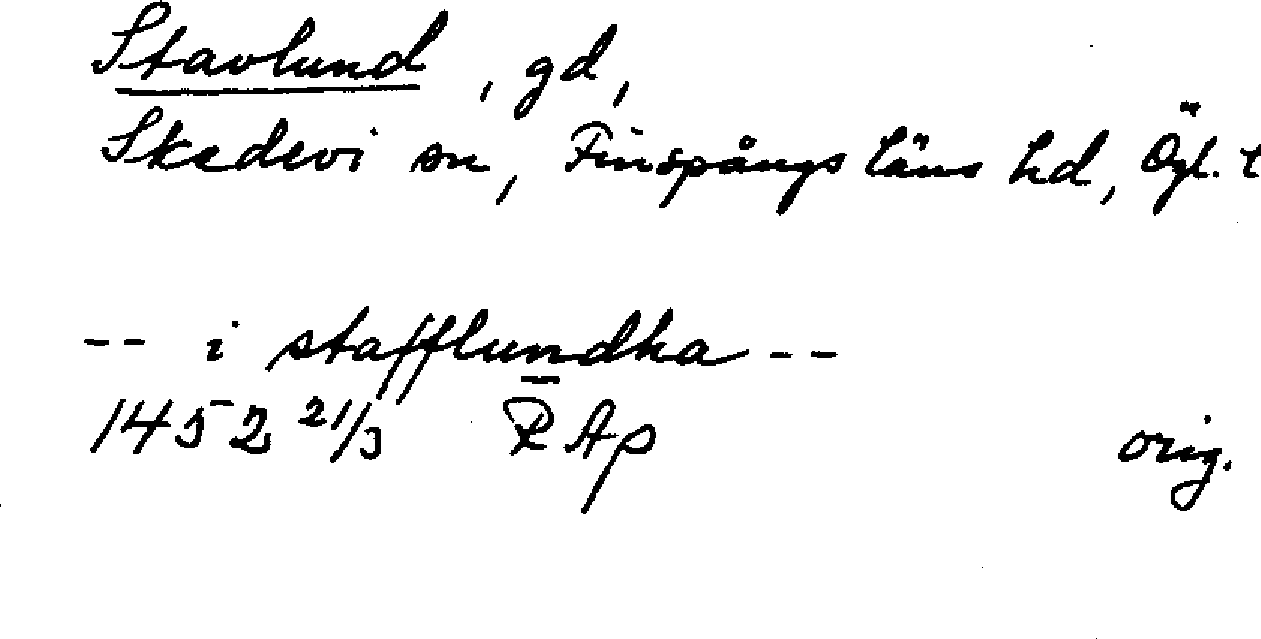 Stavlund, gd,
Skedevi sn, Finspångs läns hd, Ögl. t
-- i stafflundha --
1452 21/3 RAp orig.